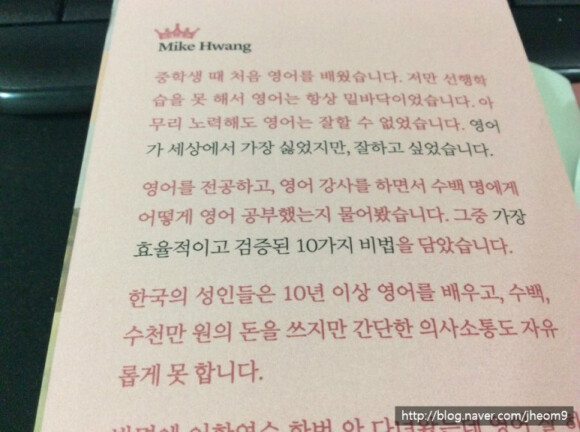 Mike Hwang
중학생 때 처음 영어를 배웠습니다. 저만 선행학
습을 못 해서 영어는 항상 밑바닥이었습니다. 아
무리 노력해도 영어는 잘할 수 없었습니다. 영어
가 세상에서 가장 싫었지만, 잘하고 싶었습니다.
영어를 전공하고, 영어 강사를 하면서 수백 명에게
어떻게 영어 공부했는지 물어봤습니다. 그중 가장
효율적이고 검증된 10가지 비법을 담았습니다.
한국의 성인들은 10년 이상 영어를 배우고, 수백,
수천만 원의 돈을 쓰지만 간단한 의사소통도 자유
롭게 못 합니다.
어학연수 한번 안 다녀왔는데 영어
http://blog.naver.com/jheom9